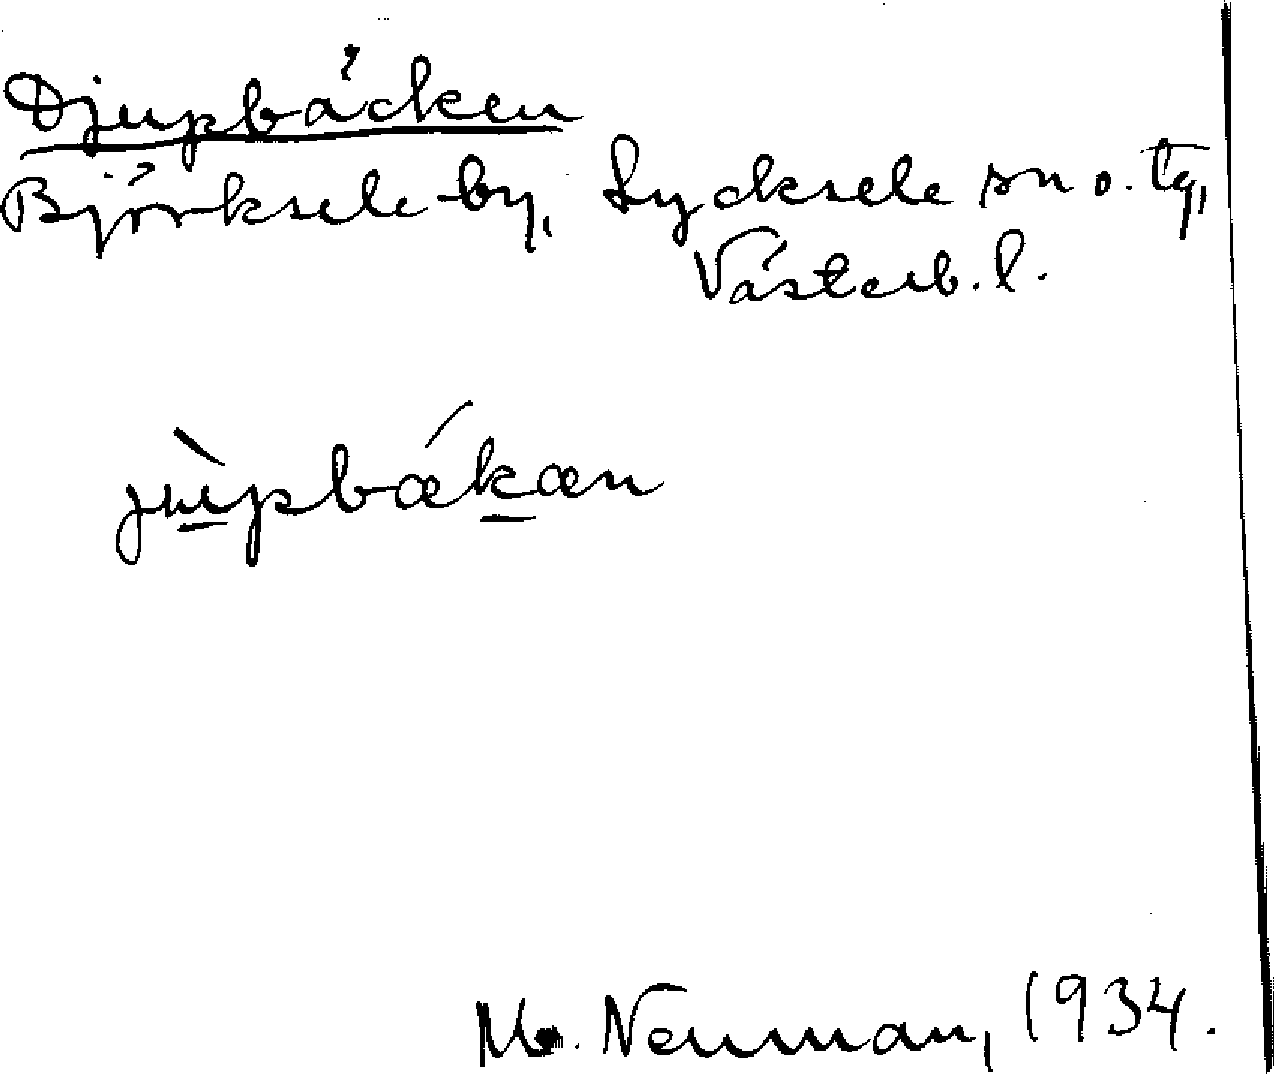 Djupbäcken
Björksele by, Lycksele sn o. tg,
Västerb. l.
jùpbǽkæn
M. Neuman, 1934.